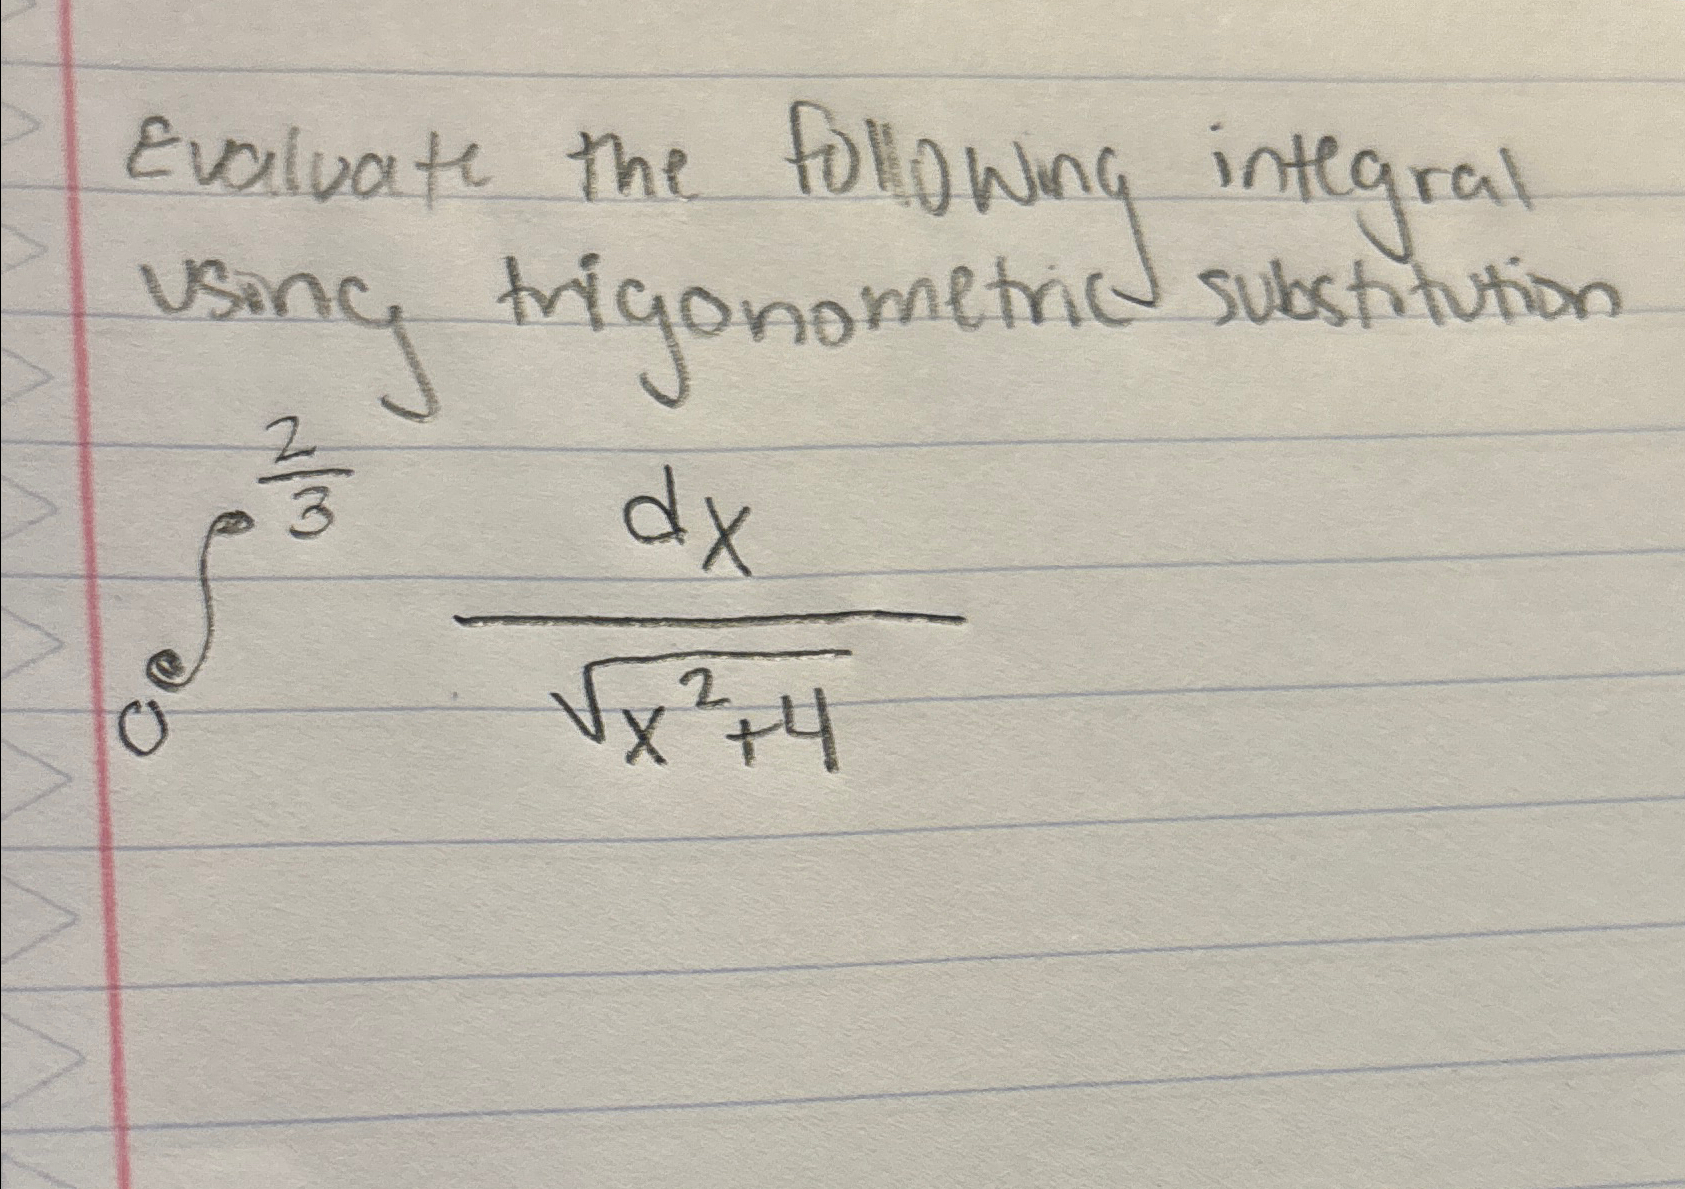 Evaluate the following integral
using trigonometric substitution
∫₀^(2/3) dx / √(x²+4)